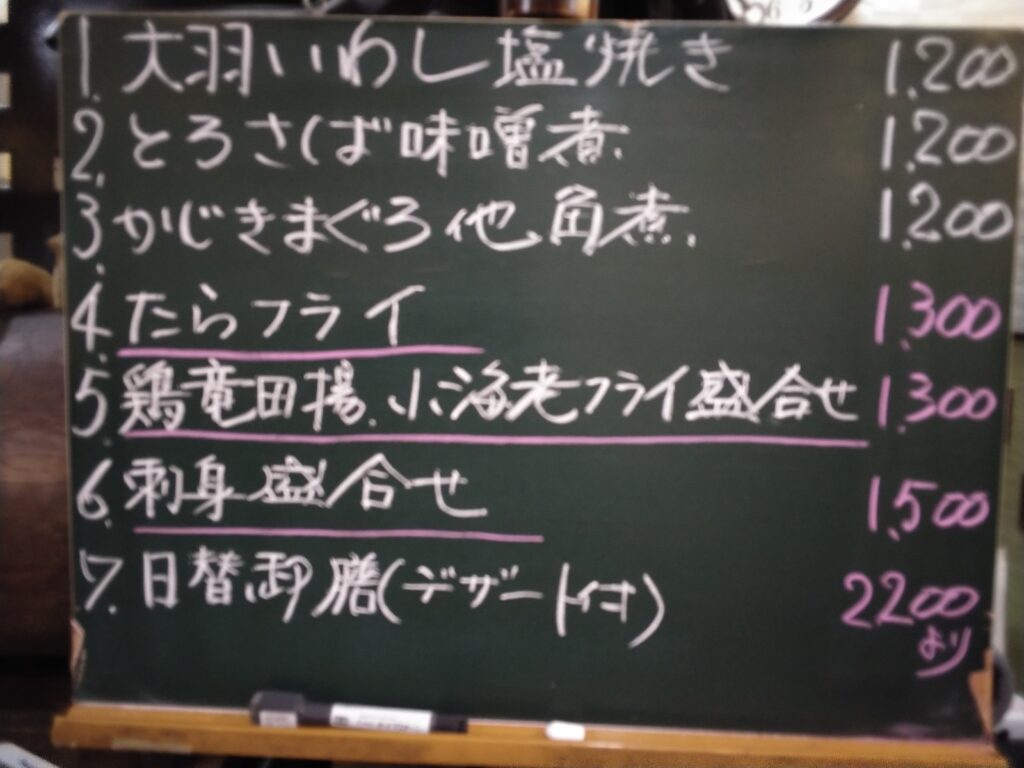 1. 大羽いわし塩焼き 1,200
2. とろさば味噌煮. 1,200
3. かじきまぐろ他角煮. 1,200
4. たらフライ 1,300
5. 鶏竜田揚.小海老フライ盛合せ 1,300
6. 刺身盛合せ 1,500
7. 日替御膳(デザート付) 2,200
より